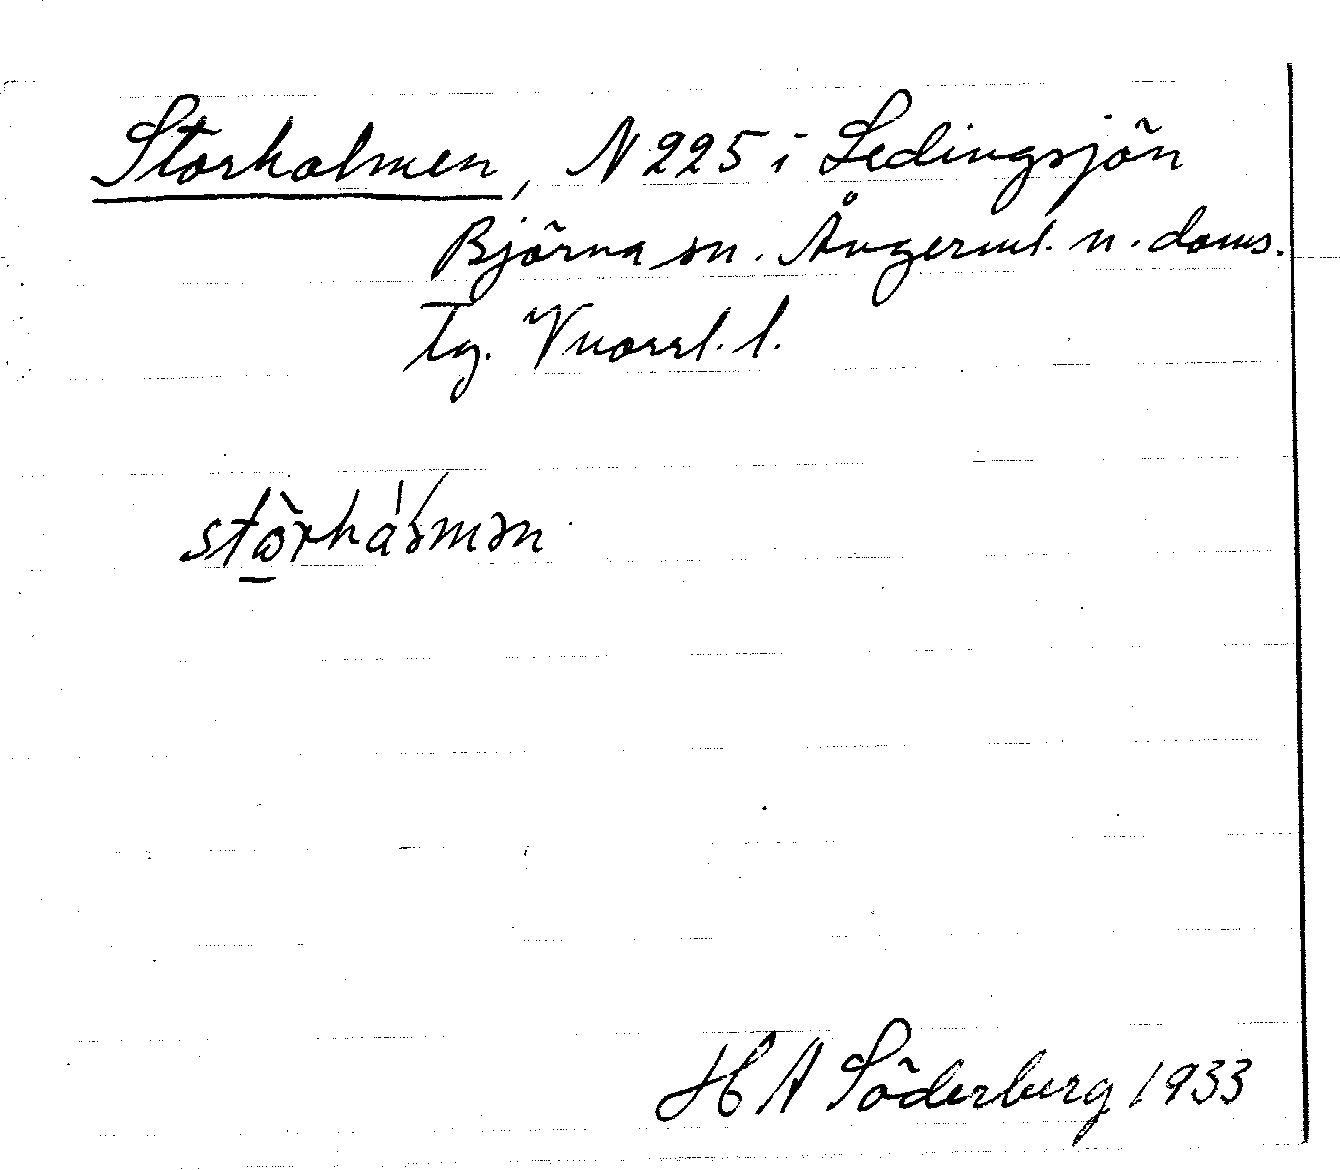 Storholmen, N 225 i Ledingsjön
Björna sn. Ångerml. n. doms.
tg. Vnorrl. l.
HA Söderberg 1933